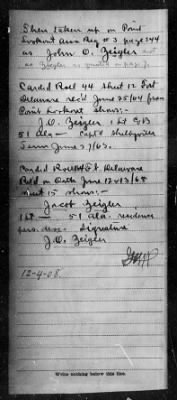 Then taken up on Point
Lookout Ass'n Reg # 3 page 244
as John O. Zeigler not
as Zeigler as
Carded Roll 44 Sheet 12 Fort
Delaware rec'd June 25/64 from
Point Lookout shows:-
J.O. Zeigler, 1 Lt
51 Ala — Capt'd Shelbyville
Tenn June 27/63.
Carded Roll Ft Delaware
Reld on Oath June 12 1865
sheet 15 shows:-
Jacob Zeigler
1 Lt — 51 Ala. residence
pers. desc. Signature
J.O. Zeigler
12-4-08.
Write nothing below this line.